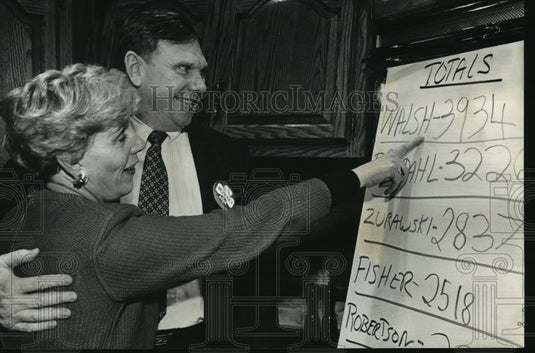 TOTALS
WALSH - 3934
AHL 322
ZURAWSKI - 2832
FISHER - 2518
ROBERTSON -
HISTORIC IMAGES